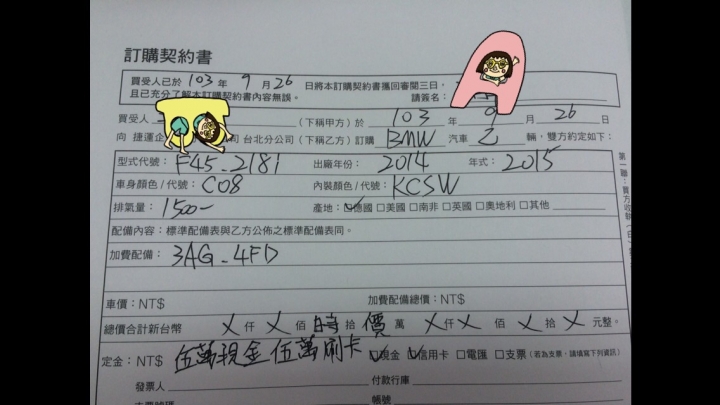 訂購契約書
買受人已於 103 年 9 月 26 日將本訂購契約書攜回審閱三日，
且已充分了解本訂購契約書內容無誤。 請簽名：
買受人 (下稱甲方) 於 103 年 9 月 26 日
向 捷運企 司 台北分公司 (下稱乙方) 訂購 BMW 汽車 乙 輛，雙方約定如下：
型式代號： F45-218i 出廠年份： 2014 年式： 2015
車身顏色/代號： C08 內裝顏色/代號： KCSW
排氣量： 1500- 產地： ☑德國 □美國 □南非 □英國 □奧地利 □其他
配備內容：標準配備表與乙方公佈之標準配備表同。
加費配備： 3AG-4FD
車價：NT$ 加費配備總價：NT$
總價合計新台幣 X 仟 X 佰 時 拾 價 萬 X 仟 X 佰 X 拾 X 元整。
定金：NT$ 伍萬現金 伍萬刷卡 ☑現金 ☑信用卡 □電匯 □支票 (若為支票，請填寫下列資訊)
發票人 付款行庫
帳號
第一聯：買方收執 (白)